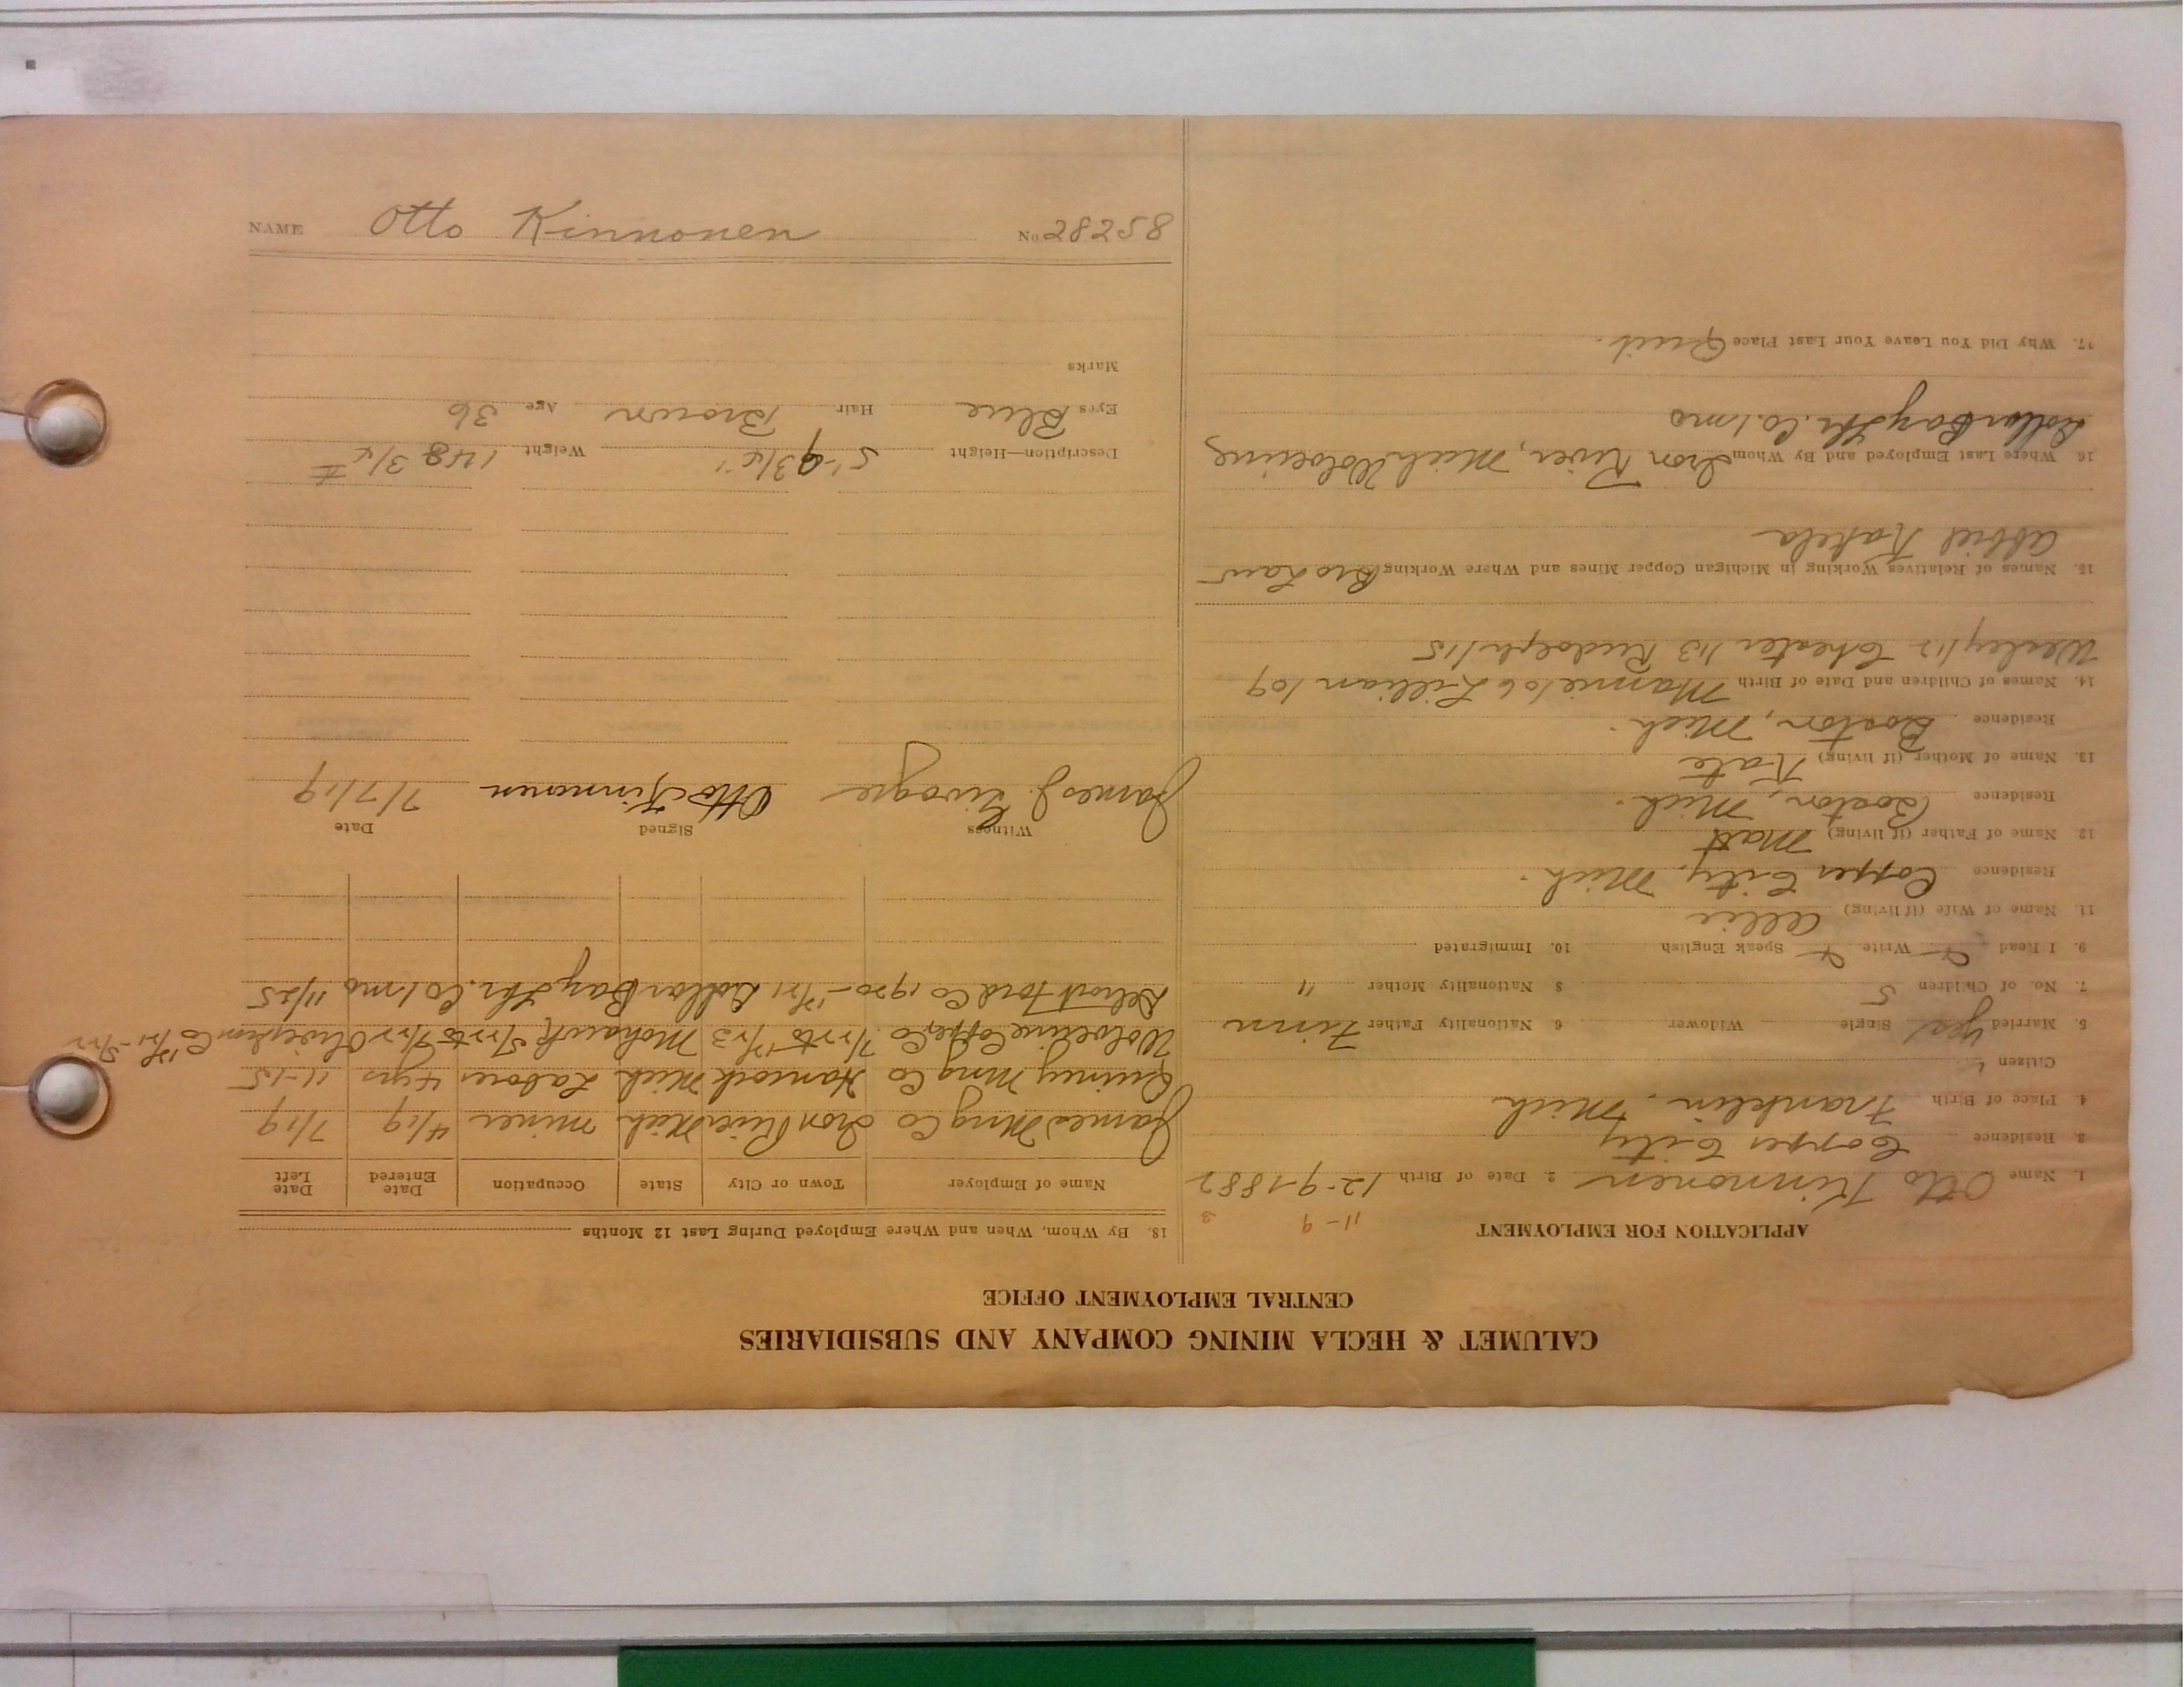 CALUMET & HECLA MINING COMPANY AND SUBSIDIARIES
CENTRAL EMPLOYMENT OFFICE
APPLICATION FOR EMPLOYMENT
11-9 3
1. Name Otto Kinnonen 2. Date of Birth 12-9-1882
3. Residence Copper City
4. Place of Birth Franklin, Mich
Citizen
5. Married yes Single Widower 6. Nationality Father Finn
7. No. of Children 5 8 Nationality Mother "
9. I Read Write Speak English 10. Immigrated
11. Name of Wife (if living) Allie
Residence Copper City, Mich.
12. Name of Father (if living) Matt
Residence Boston, Mich.
13. Name of Mother (if living) Kate
Residence Boston, Mich.
14. Names of Children and Date of Birth Mamie 106 Lillian 109
Wesley 112 Chester 113 Rudolph 115
15. Names of Relatives Working in Michigan Copper Mines and Where Working Bro Law
Kakela
16 Where Last Employed and By Whom Iron River, Mich Wolverine
Dollar Bay Co. 1 mo
17. Why Did You Leave Your Last Place Quit.
18. By Whom, When and Where Employed During Last 12 Months
Name of Employer Town or City State Occupation Date Entered Date Left
James Mng Co Iron River Mich miner 4/19 7/19
Quincy Mng Co Hancock Mich Laborer 4 yrs 11-15
Wolverine Copper Co. Mohawk
Detroit Ford Co 1920 - Dollar Bay Co 1 mo 11/25
Witness Signed Date
James J. Otto Kinnonen 7/7/19
Description—Height 5'-9 3/4" Weight 148 3/4 #
Eyes Blue Hair Brown Age 36
Marks
NAME Otto Kinnonen No 28258